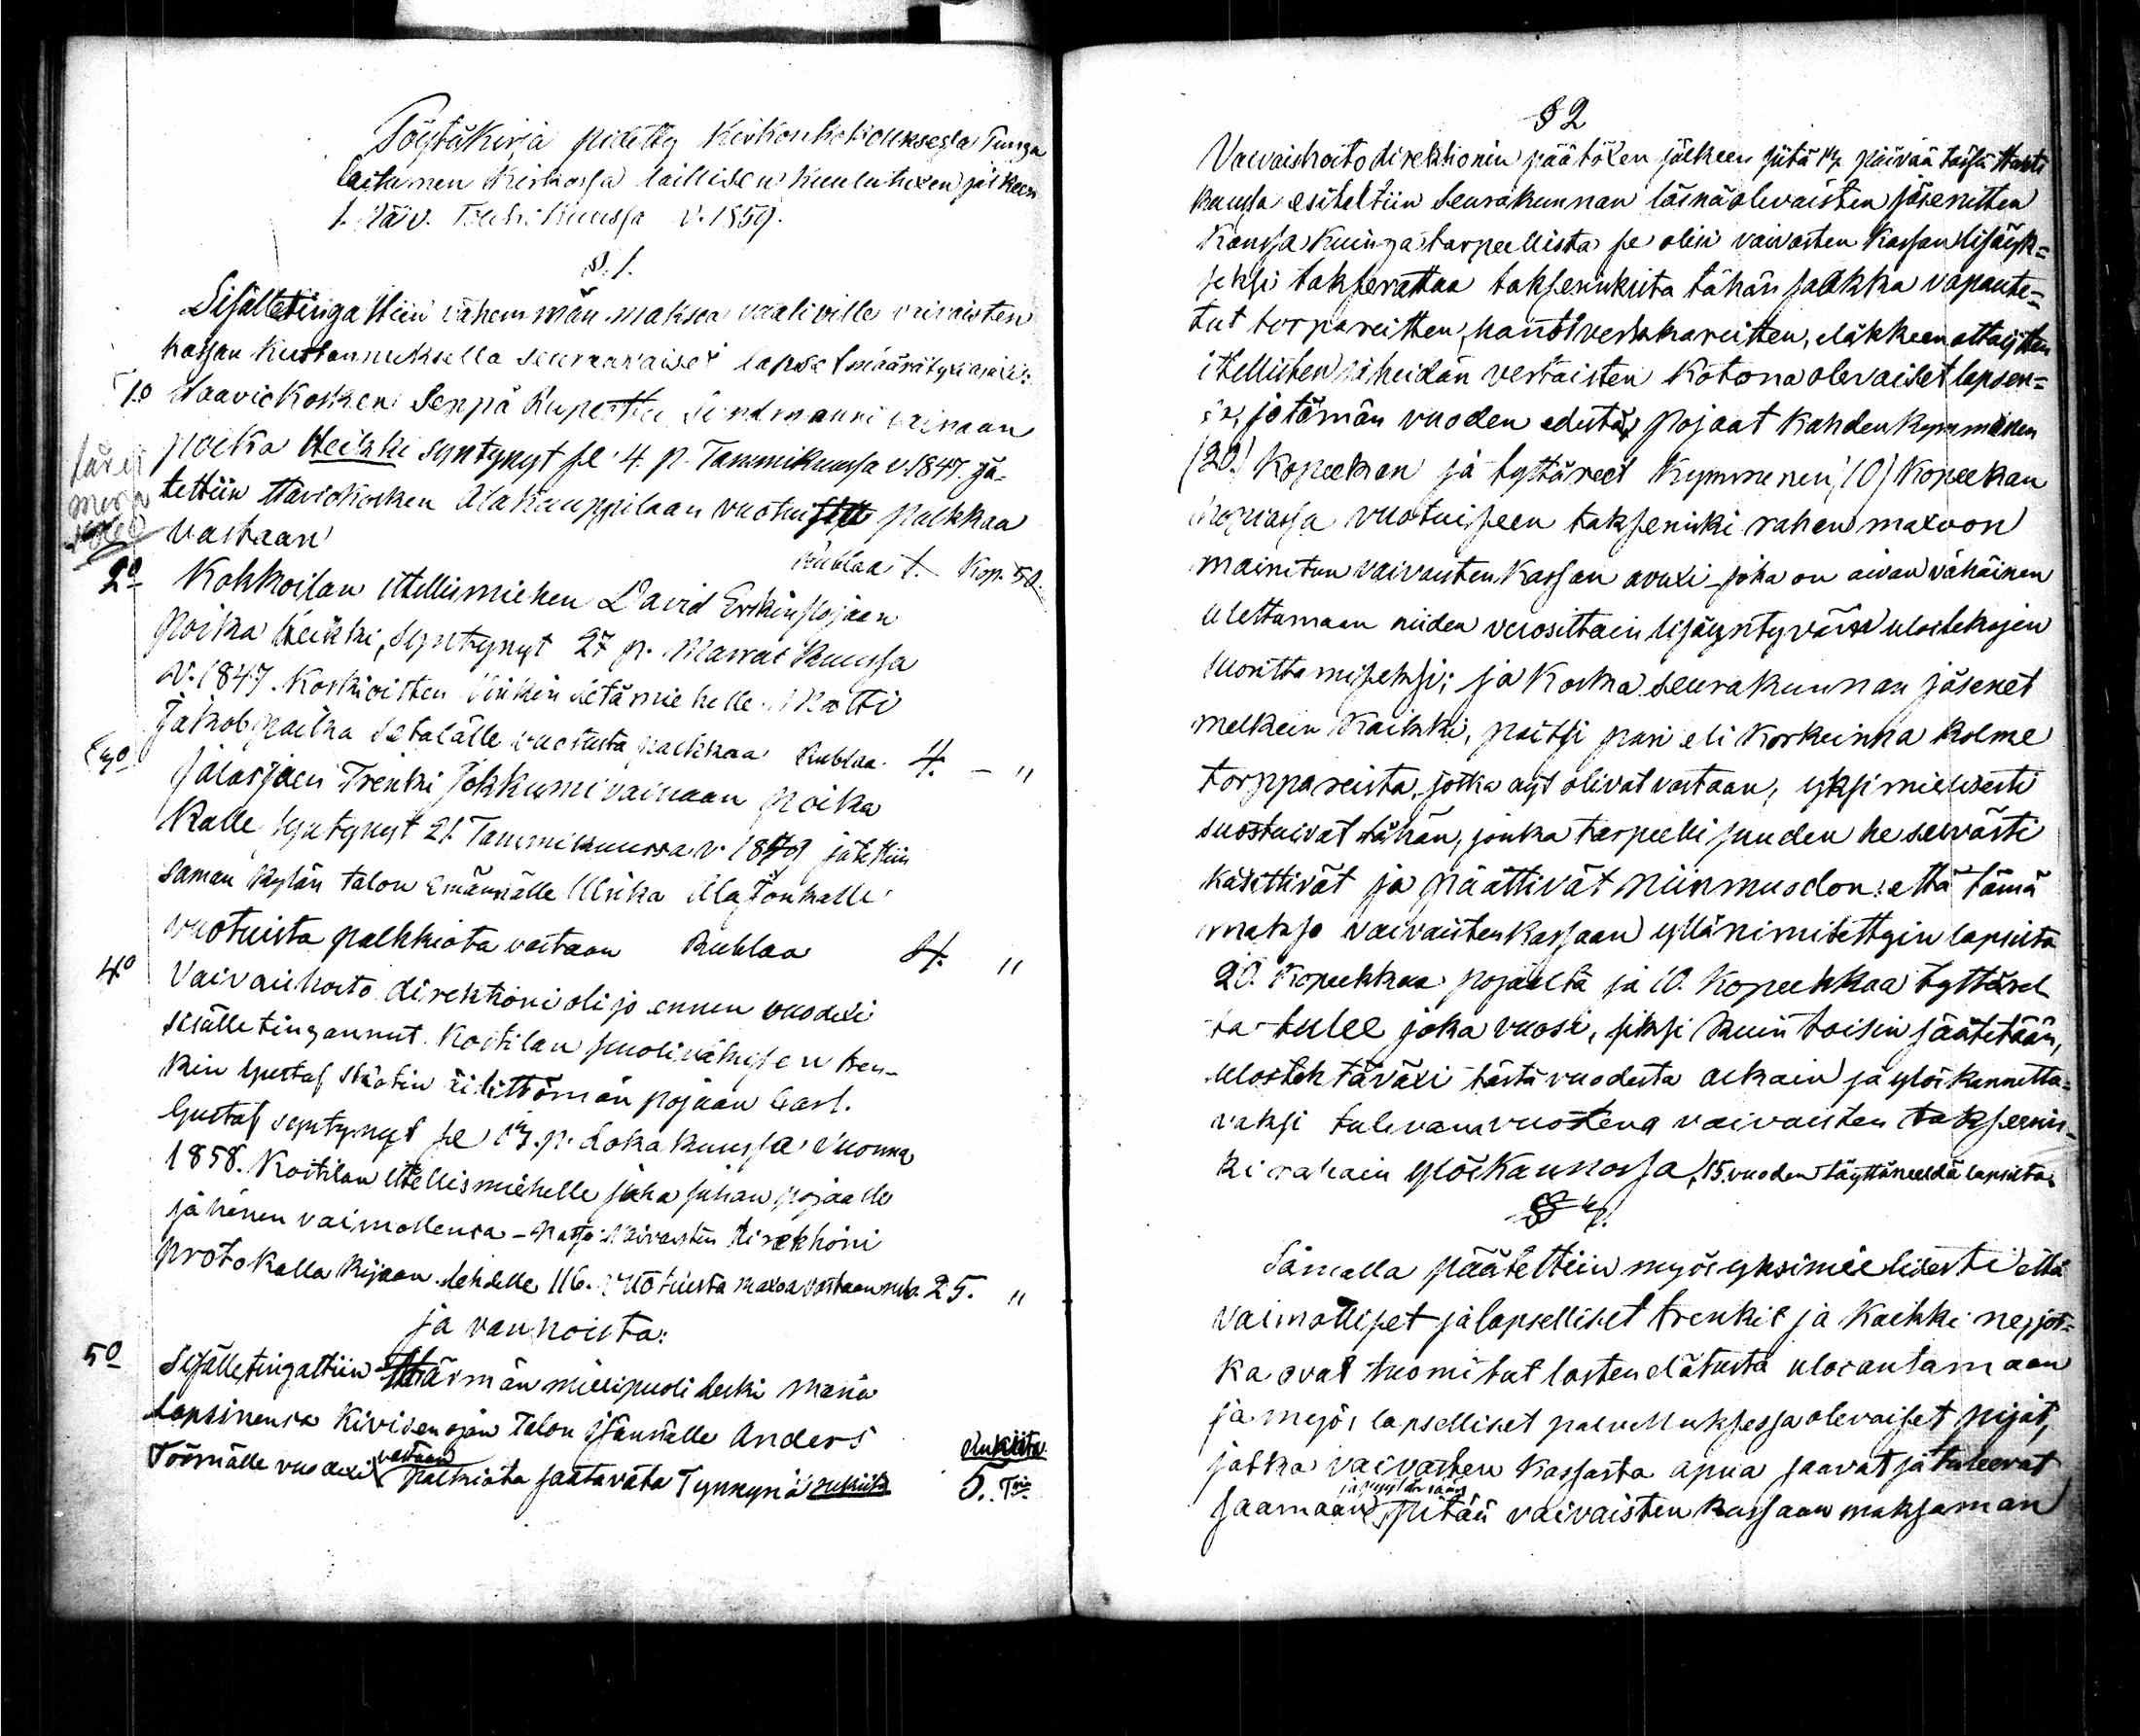 Pöytäkirja pidetty Kirkonkokouksessa Tunga
laitumen Kirkossa laillisen kuulutuxen jälkeen
1. Päiv. Touko Kuussa v. 1859.
§. 1.
Sisälletingattiin vähemmän maksoa vaativille vaivaisten
kassan kustannuksella seuraavaiset lapset määrätyxi ajaxi:
1o Haaviokosken Seppä Rupertti Sundmanni vainaan
poika Heikki syntynyt se 4. p. Tammikuussa v. 1847. jä-
tettiin Haviokosken Alakauppilaan vuotuista palkkaa
vastaan Rublaa 1. Kop. 50.
2o Kokkoilan ittellismiehen David Erkinpojaan
poika Heikki, syntynyt 27 p. Marras kuussa
v. 1847. Koskioisten Vinkin setämiehelle Matti
Jakobpoika Setalälle vuotuista palkkaa Rublaa 4. — "
3o Jalasjaen Trenki Jokkumi vainaan poika
Kalle syntynyt 21. Tammikuussa v. 1849 jätettiin
saman kylän talon Emännälle Ulrika AlaJoukalle
vuotuista palkkiota vastaan Rublaa 4. "
4o Vaivaishoito direktioni oli jo ennen vuodexi
sisälletingannut Koitilan puolinaisen tren-
kin Gustaf äidittömän pojaan Carl.
Gustaf syntynyt se 13. p. Lokakuussa Vuonna
1858. Koitilan ittellismiehelle Juha Juhan pojaalle
ja hänen vaimollensa – katso Vaivaisten direktioni
protokolla kirjaan lehdelle 116. vuotuista maxoa vastaan rub. 25. "
ja vanhoista:
5o Sisälletingattiin Härmän mielipuoli leski Maria
Lapsinensa Kivisenojan talon Isännälle Anders
Töörnälle vuodexi vastaan palkiota saatavata Tynnyriä rukiita Rukiita 5. Tri
§ 2
Vaivaishoito direktionin päätöxen jälkeen siitä 14 päivää tässä Huhti
kuussa esiteltiin Seurakunnan läsnäolevaisten jäsenitten
kanssa kuinga tarpeellista se olisi vaivasten Kassan lisäyk=
seksi takserattaa takserinkista tähän saakka vapaute=
tut torpareitten, hanotverkkareitten, eläkkeen ottajitten
itellisten ja heidän vertaisten kotona olevaiset lapsen=
sa, jo tömän vuoden edestä, pojaat kahdenkymmenen
(20.) Kopeekan ja tyttäreet Kymmenen (10) Kopeekan
hopiassa vuotuiseen takserinki rahan maxoon
mainitun vaivaisten Kassan avuxi joka on aivan vähäinen
ulettumaan niiden vuosittain lisäyntyväin ulostekojen
suorittamiseksi; ja koska seurakunnan jäsenet
melkein kaikki, paitsi pari eli korkeinna kolme
torppareista, jotka nyt olivat vastaan, yksimielisesti
suostuivat tähän, jonka tarpeellisuuden he selvästi
käsittivät ja päättivät niinmuodon: että tämä
makso vaivaisten Kassaan yllänimitettyin lapsista
20. Kopeekkaa pojaalta ja 10. Kopeekkaa tyttärel
ta tulee joka vuosi, siksi kuin toisin säätetään,
ulostehtäväxi tästä vuodesta alkain ja ylöskannetta=
vaksi tulevana vuotena vaivaisten takserin-
ki rahain ylöskannossa, 15. vuoden täyttäneeldä lapsista.
§ 3.
Samalla päätettiin myös yksimielisesti että
vaimolliset ja lapselliset trenkit ja kaikki ne, jot=
ka ovat tuomitut lasten elätusta ulosantamaan
ja myös lapselliset palvelluksessa olevaiset piiat,
jotka vaivaisten Kassasta apua saavat ja tuleevat
saamaan, pitää vaivaisten kassaan maksaman